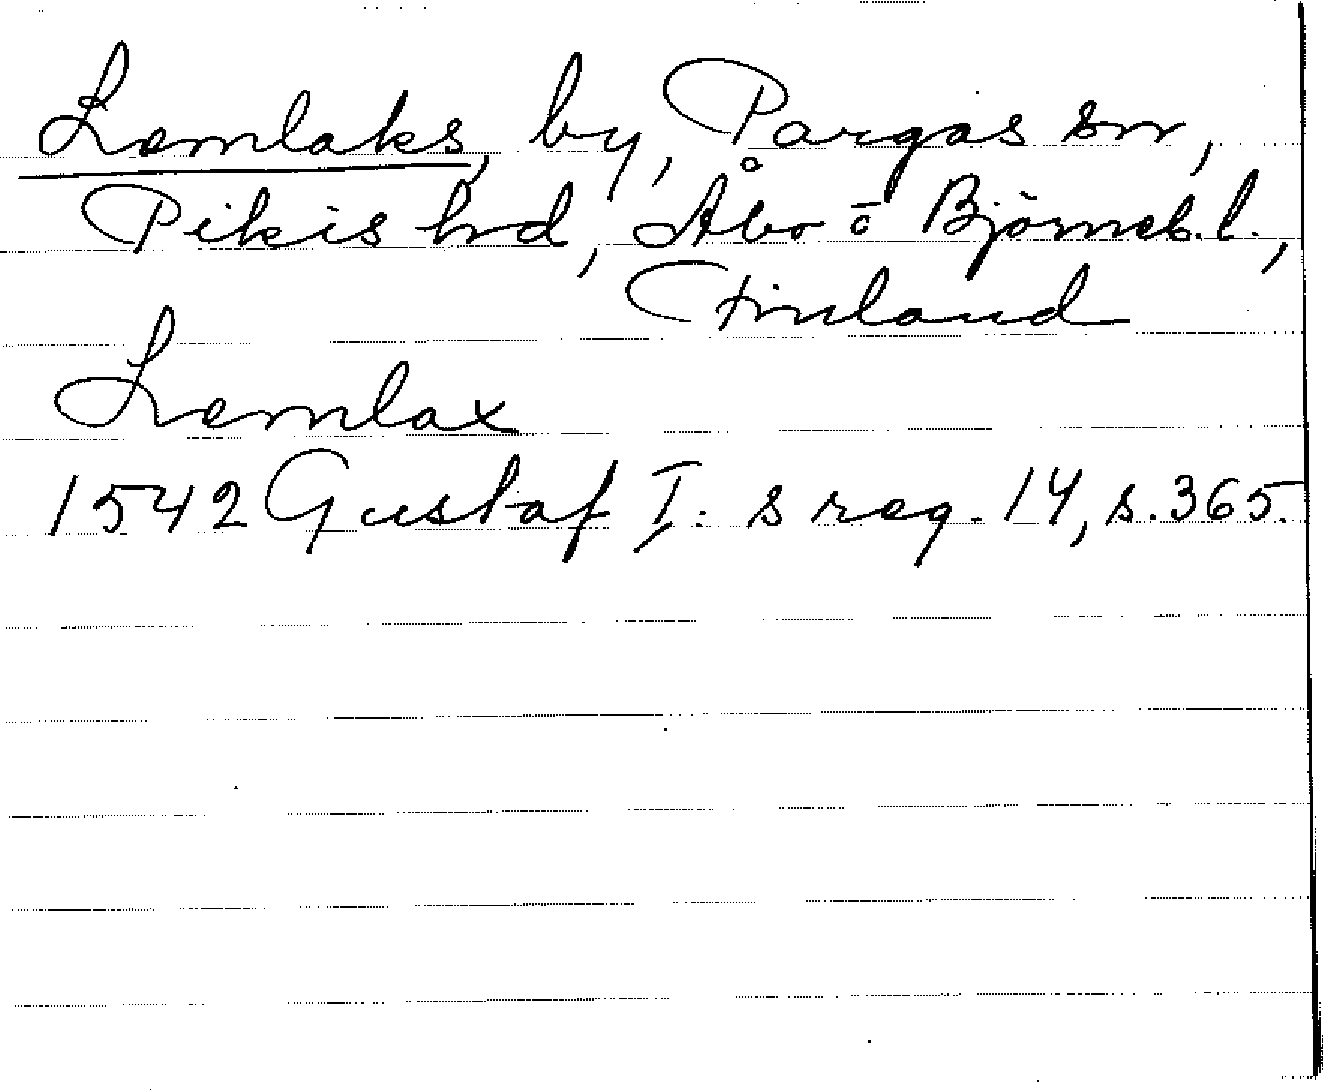 Lemlaks, by, Pargas sn,
Pikis hd, Åbo o Björneb. l.,
Finland
Lemlax
1542 Gustaf I: s reg. 14, s. 365.